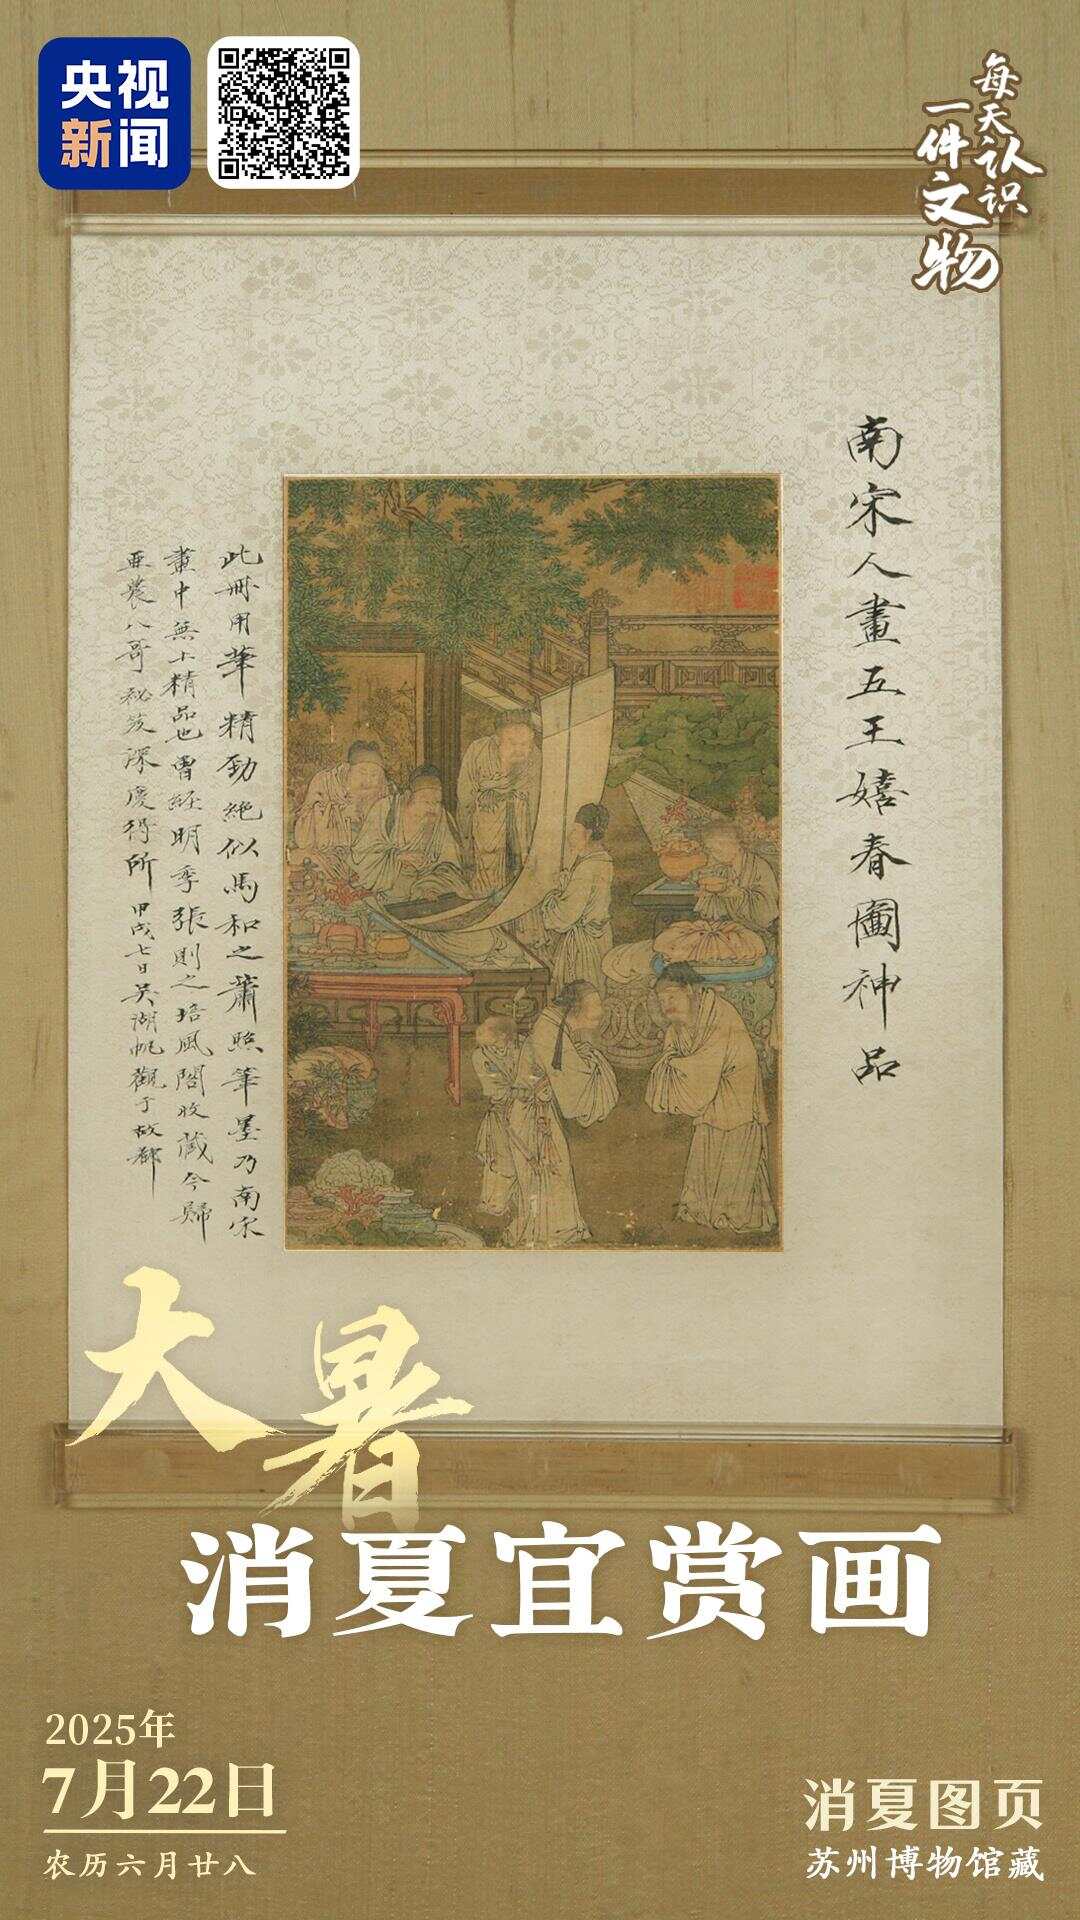 央视
新闻
每天认识
一件文物
南宋人畫五王嬉春圖神品
此冊用筆精勁絕似馬和之蕭照筆墨乃南宋
畫中無上精品也曾經明季張則之培風閣收藏今歸
亚農八哥秘笈深慶得所 甲戌七日吴湖帆觀于故都
大暑
消夏宜赏画
2025年
7月22日
农历六月廿八
消夏图页
苏州博物馆藏